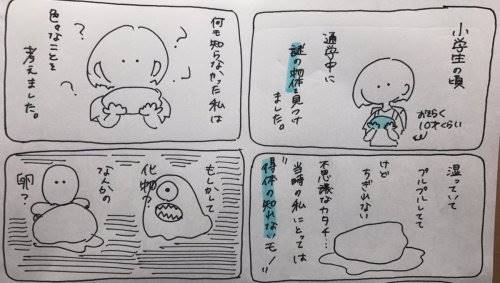 小学生の頃
通学中に
謎の物体を見つけ
ました。
おそらく
10才くらい
湿っていて
プルプルしてて
けど
ちぎれない
不思議なカタチ…
当時の私にとっては
"得体の知れないモノ"
何も知らなかった私は
色々なことを
考えました。
?
?
?
?
もしかして
化物?
なんかの
卵?